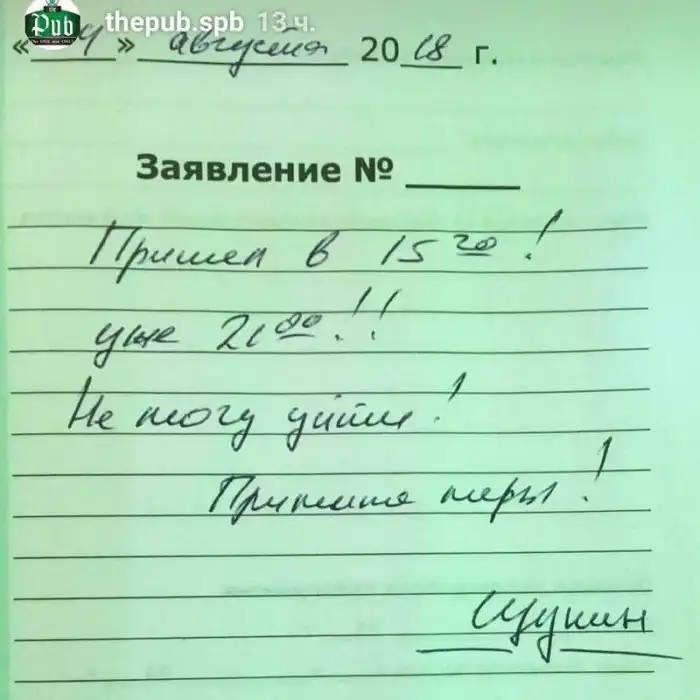 The Pub
thepub.spb 13 ч.
«4» августа 2018 г.
Заявление №
Пришел в 15 20!
уже 21 00!!
Не могу уйти!
Примите меры!
Щукин